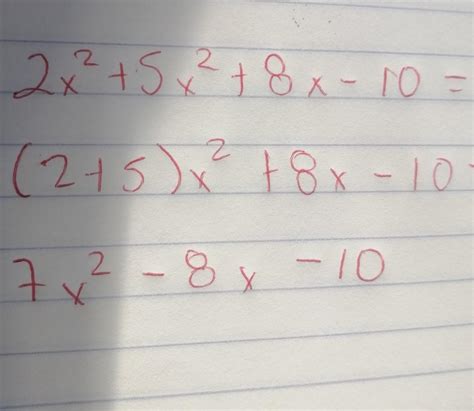 2x² + 5x² + 8x - 10 =
(2+5)x² + 8x - 10
7x² - 8x - 10